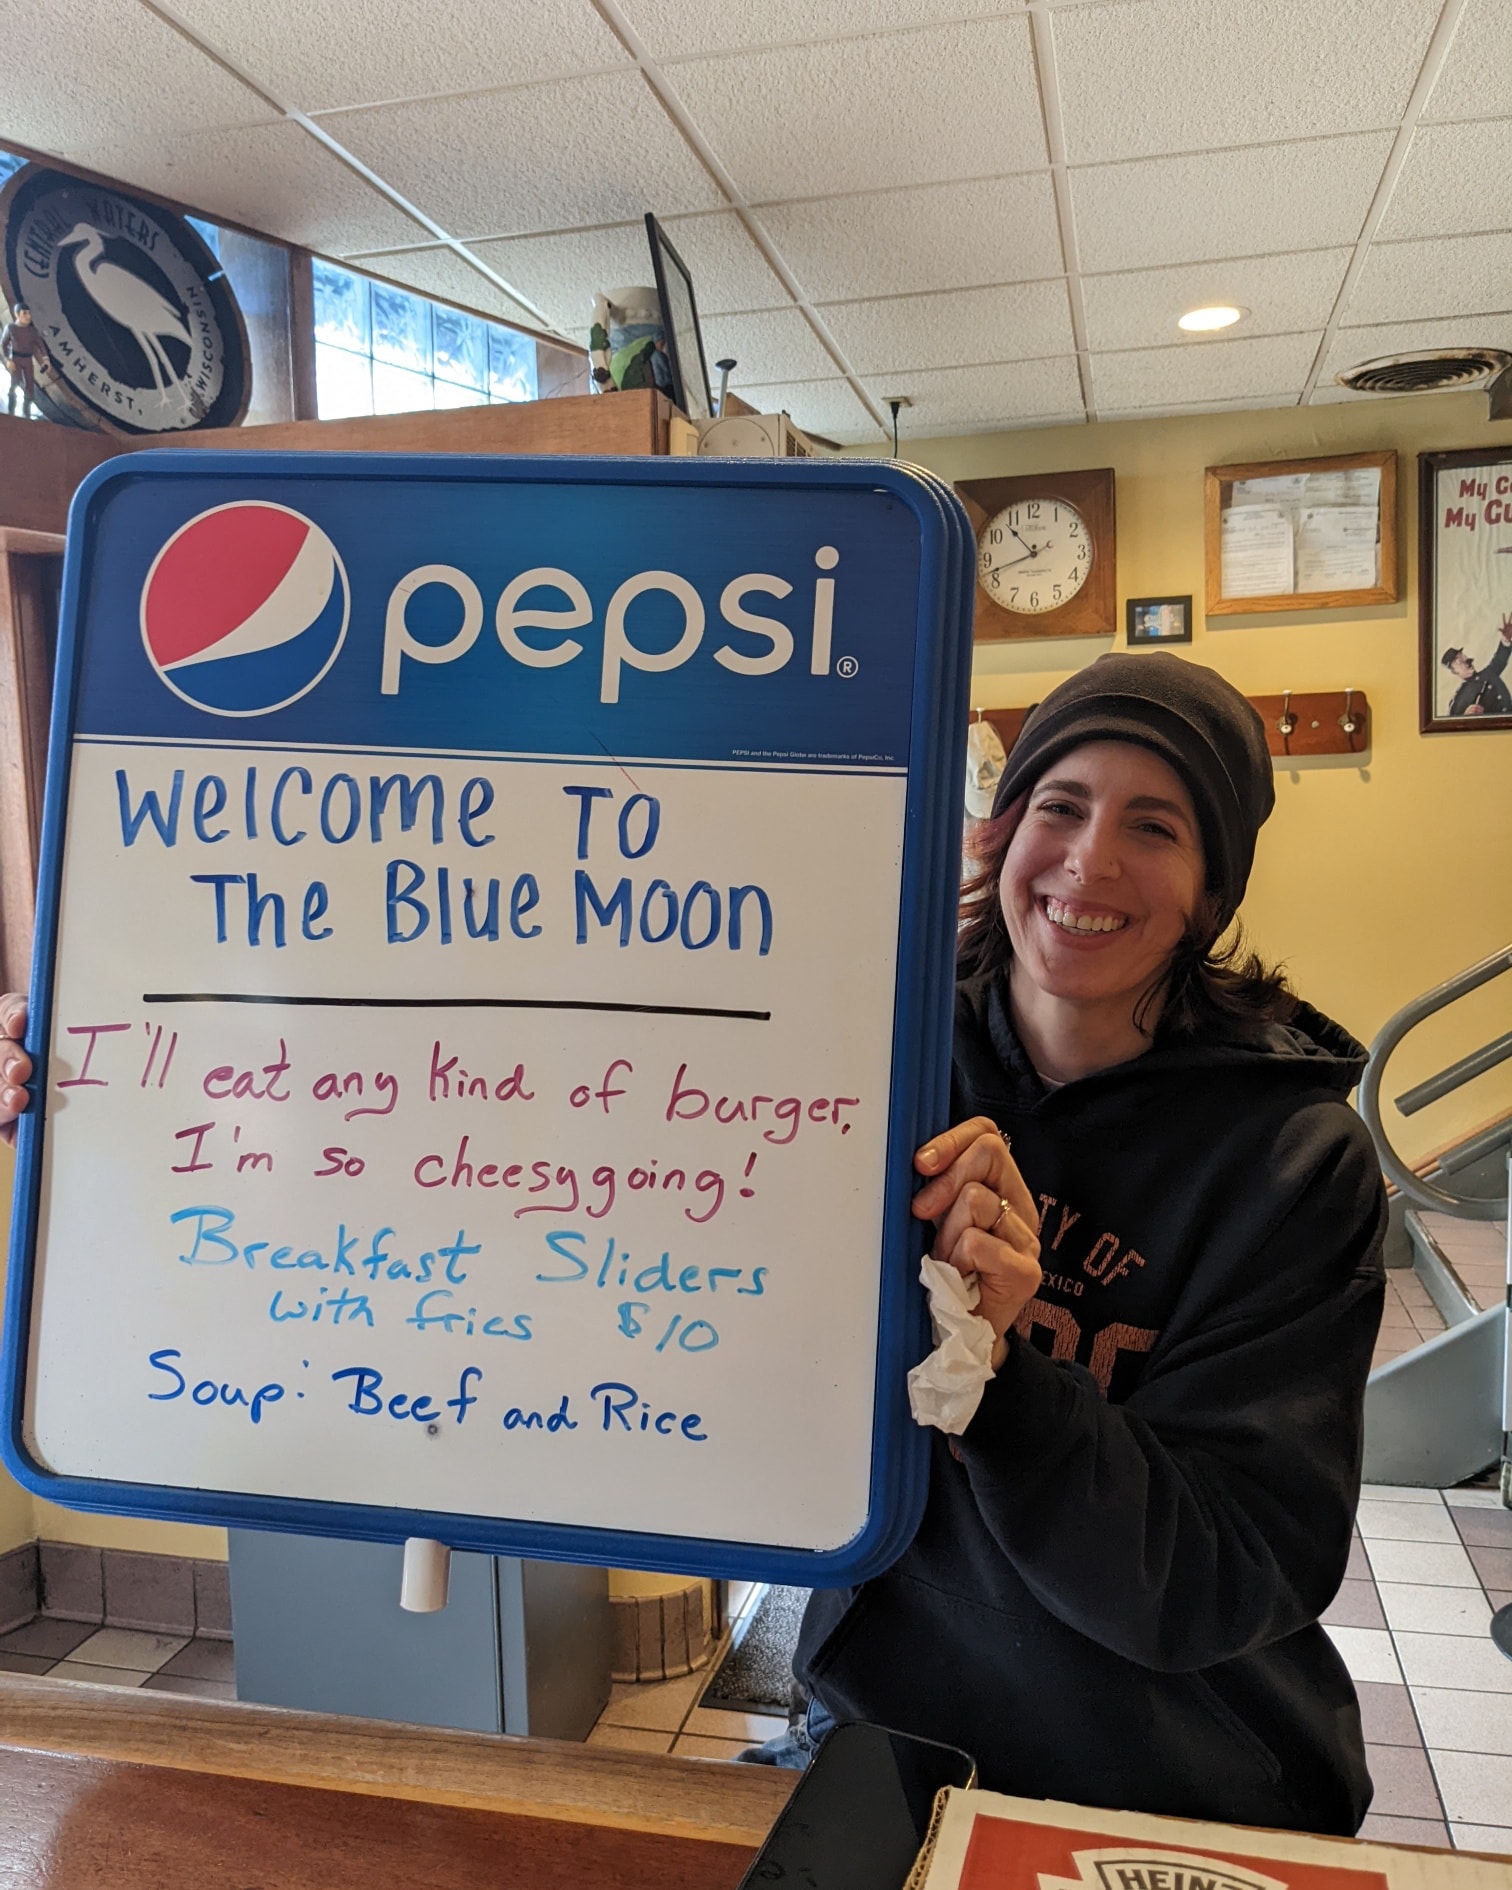 CENTRAL WATERS
AMHERST, WISCONSIN
pepsi®
PEPSI and the Pepsi Globe are trademarks of PepsiCo, Inc.
Welcome To
The Blue Moon
I'll eat any kind of burger,
I'm so cheesygoing!
Breakfast Sliders
with fries $10
Soup: Beef and Rice
11 12 1
10 2
9 3
8 4
7 6 5
My
My
TY OF
EXICO
HEINZ